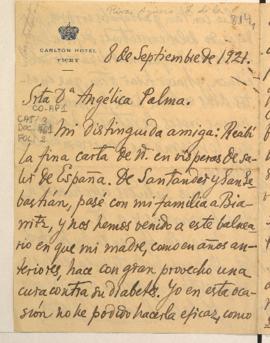 Riva Agüero, J. de la
814,
CARLTON HOTEL
VICHY
8 de Septiembre de 1921.
Srta Dª Angélica Palma.
CO-APZ
CAJ: 3
DOC.
FOL: 2
Mi distinguida amiga: Recibí
la fina carta de V. en vísperas de sa-
lir de España. De Santander y San Se-
bastián, pasé con mi familia a Bia-
rritz, y nos hemos venido a este balnea-
rio en que mi madre, como en años an-
teriores, hace con gran provecho una
cura contra su diabetes. Yo en esta oca-
sión no he podido hacerla eficaz, como